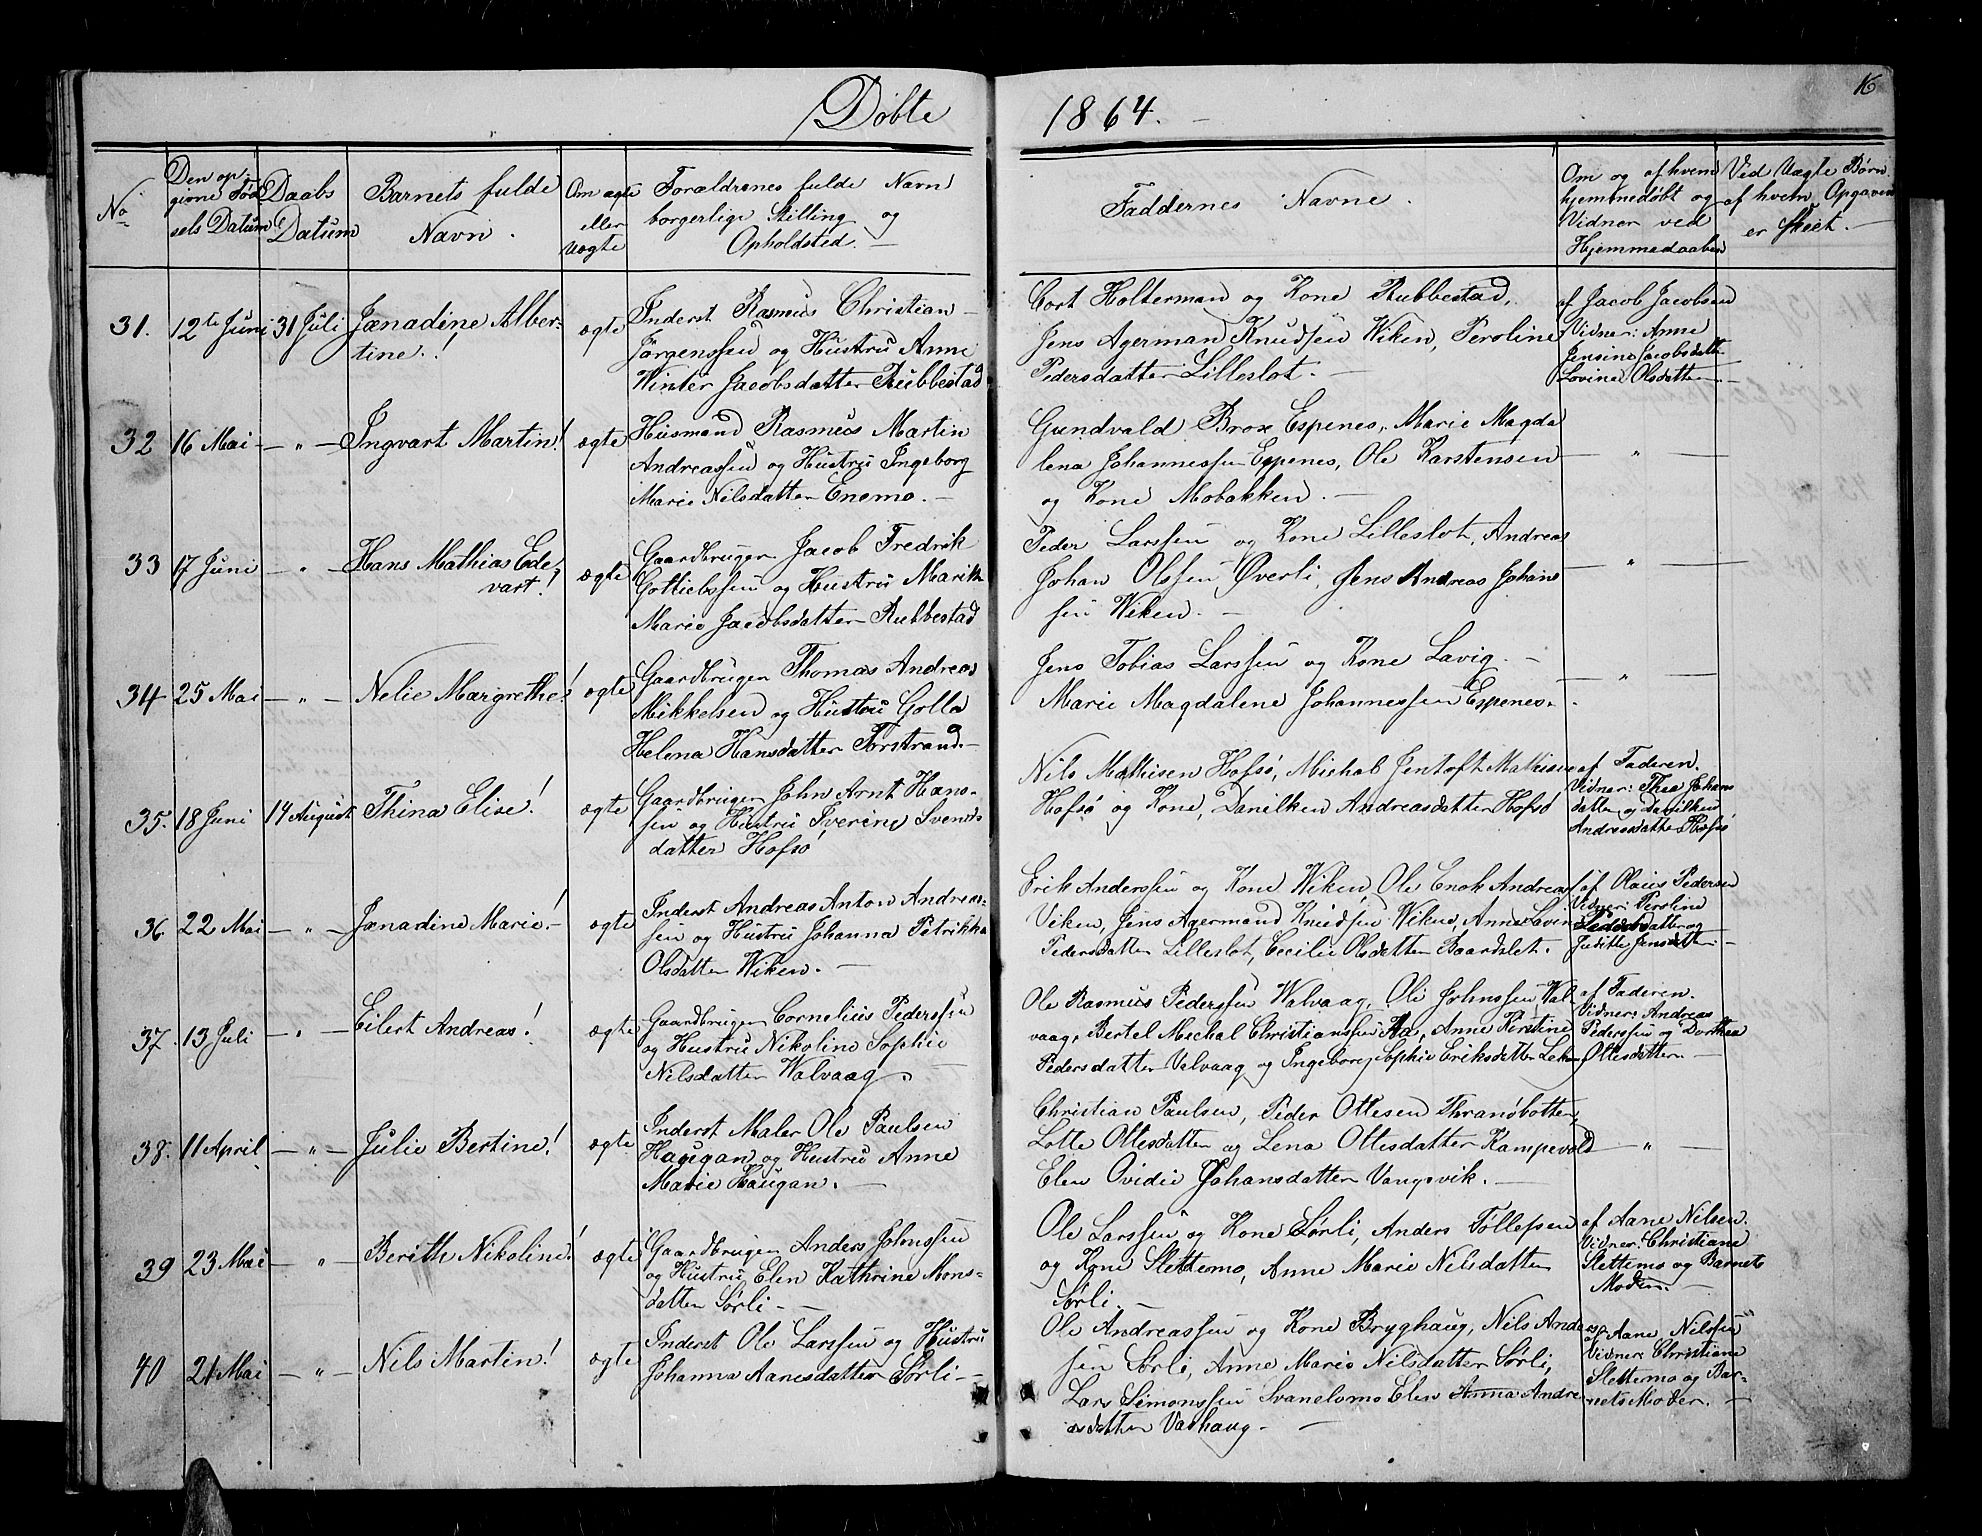 Døbte
1864.
16
No
Den op-
givne Fød-
sels Datum
Daabs
Datum
Barnets fulde
Navn.
Om ægte
eller
uægte
Forældrenes fulde Navn
borgerlige Stilling og
Opholdsted.
Faddernes Navne.
Om og af hvem
hjemmedøbt og
Vidner ved
Hjemmedaaben
Ved Uægte Børn
af hvem Opgaven
er skeet.
31. 12te Juni 31 Juli Jænadine Alber-
tine! ægte
Inderst Rasmus Christian
Jørgenssen og Hustru Anne
Winter Jacobsdatter Rubbestad
Cort Holterman og Kone Rubbestad,
Jens Agerman Knudsen Wiken, Peroline
Pedersdatter Lilleslot.
af Jacob Jacobsen
Vidner: Anne
Jensine Jacobsdatter
Lovine Olsdatter
32 16 Mai — " — Ingvart Martin! ægte
Husmand Rasmus Martin
Andreassen og Hustru Ingeborg
Marie Nilsdatter Enemo.
Gundvald Brox Espenes, Marie Magda
lena Johannessen Espenes, Ole Karstensen
og Kone Mobakken.
— " —
33 17 Juni — " — Hans Mathias Ede-
vart! ægte
Gaardbruger Jacob Fredrik
Gottliebssen og Hustru Marith
Marie Jacobsdatter Rubbestad
Peder Larssen og Kone Lilleslot, Andreas
Johan Olssen Øverli, Jens Andreas Johans
sen Wiken.
— " —
34 25 Mai — " — Nelie Margrethe! ægte
Gaardbruger Thomas Andreas
Mikkelsen og Hustru Golla
Helena Hansdatter Forstrand.
Jens Tobias Larssen og Kone Lavig.
Marie Magdalene Johannessen Espenes.
— " —
35. 18 Juni 14 August Thina Elise! ægte
Gaardbruger John Arnt Hans-
sen og Hustru Iverine Svends
datter Hofsø
Nils Mathisen Hofsø, Michal Jentoft Mathisen
Hofsø og Kone, Danilken Andreasdatter Hofsø
af Faderen.
Vidner: Thea Johans
datter og Danilken
Andreasdatter Hofsø
36 22 Mai — " — Jænadine Marie! ægte
Inderst Andreas Anton Andreas-
sen og Hustru Johanna Petrikka
Olsdatter Wiken.
Erik Anderssen og Kone Wiken, Ole Enok Andreas
Viken, Jens Agermand Knudsen Wiken, Anne Lovine
Pedersdatter Lilleslot, Cecilie Olsdatter Baardslet.
af Olaius Pedersen
Vidner: Peroline
Pedersdatter og
Judithe Jensdatter
37. 13 Juli — " — Eilert Andreas! ægte
Gaardbruger Cornelius Pederssen
og Hustru Nikoline Sophie
Nilsdatter Walvaag.
Ole Rasmus Pederssen Walvaag, Ole Johnssen Wal-
vaag, Bertel Mechal Christianssen Aa, Anne Kirstine
Pedersdatter Valvaag og Ingeborg Sophie Eriksdatter
af Faderen.
Vidner: Andreas
Pederssen og Dorthea
Ottesdatter.
38. 11 April — " — Julie Bertine! ægte
Inderst Maler Ole Paulsen
Haugan og Hustru Anne
Marie Haugan.
Christian Paulsen, Peder Ottesen Thranøbotten,
Lotte Ottesdatter og Lena Ottesdatter Kampevold
Elen Ovidie Johansdatter Vangsvik.
— " —
39 23 Mai — " — Berith Nikoline! ægte
Gaardbruger Anders Johnssen
og Hustru Elen Kathrine Mons-
datter Sørli
Ole Larssen og Kone Sørli, Anders Tollefsen
og Kone Slettemo, Anne Marie Nilsdatter
Sørli.
af Aane Nilsen.
Vidner: Christiane
Slettemo og Barnets
Moder.
40 21 Mai — " — Nils Martin! ægte
Inderst Ole Larssen og Hustru
Johanna Aanesdatter Sørli
Ole Andreassen og Kone Bryghaug, Nils Andreas
sen Sørli, Anne Marie Nilsdatter Sørli,
Lars Simonssen Svanelvmo Elen Anna Andre
asdatter Vashaug.
af Aane Nilssen
Vidner: Christiane
Slettemo og Bar-
nets Moder.